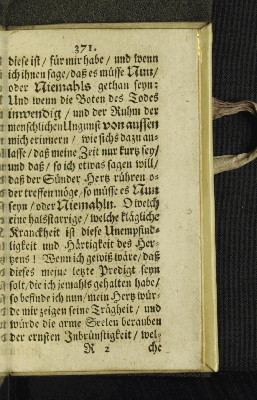 371.
diese ist / für mir habe / und wenn
ich ihnen sage / daß es müsse Nun /
oder Niemahls gethan seyn:
Und wenn die Boten des Todes
inwendig / und der Ruhm der
menschlichen Ungunst von aussen
mich erinnern / wie sichs dazu an-
lasse / daß meine Zeit nur kurtz sey /
und daß / so ich etwas sagen will /
daß der Sünder Hertz rühren o-
der treffen möge / so müsse es Nun
seyn / oder Niemahln. O welch
eine halsstarrige / welche klägliche
Kranckheit ist diese Unempfind-
ligkeit und Härtigkeit des Her-
tzens! Wenn ich gewiß wäre / daß
dieses meine letzte Predigt seyn
solt / die ich jemahls gehalten habe /
so befinde ich nun / mein Hertz wür-
de mir zeigen seine Trägheit / und
würde die arme Seelen berauben
der ernsten Inbrünstigkeit / wel-
R 2 che